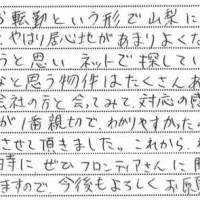 転勤という形で山梨に
やはり居心地があまりよくな
うと思い ネットで探してい
なと思う物件はたくさんあ
会社の方と会ってみて、対応の感
が1番親切で、わかりやすかった
させて頂きました。これから、
時に、ぜひフロンティアさんに
ますので、今後もよろしくお願